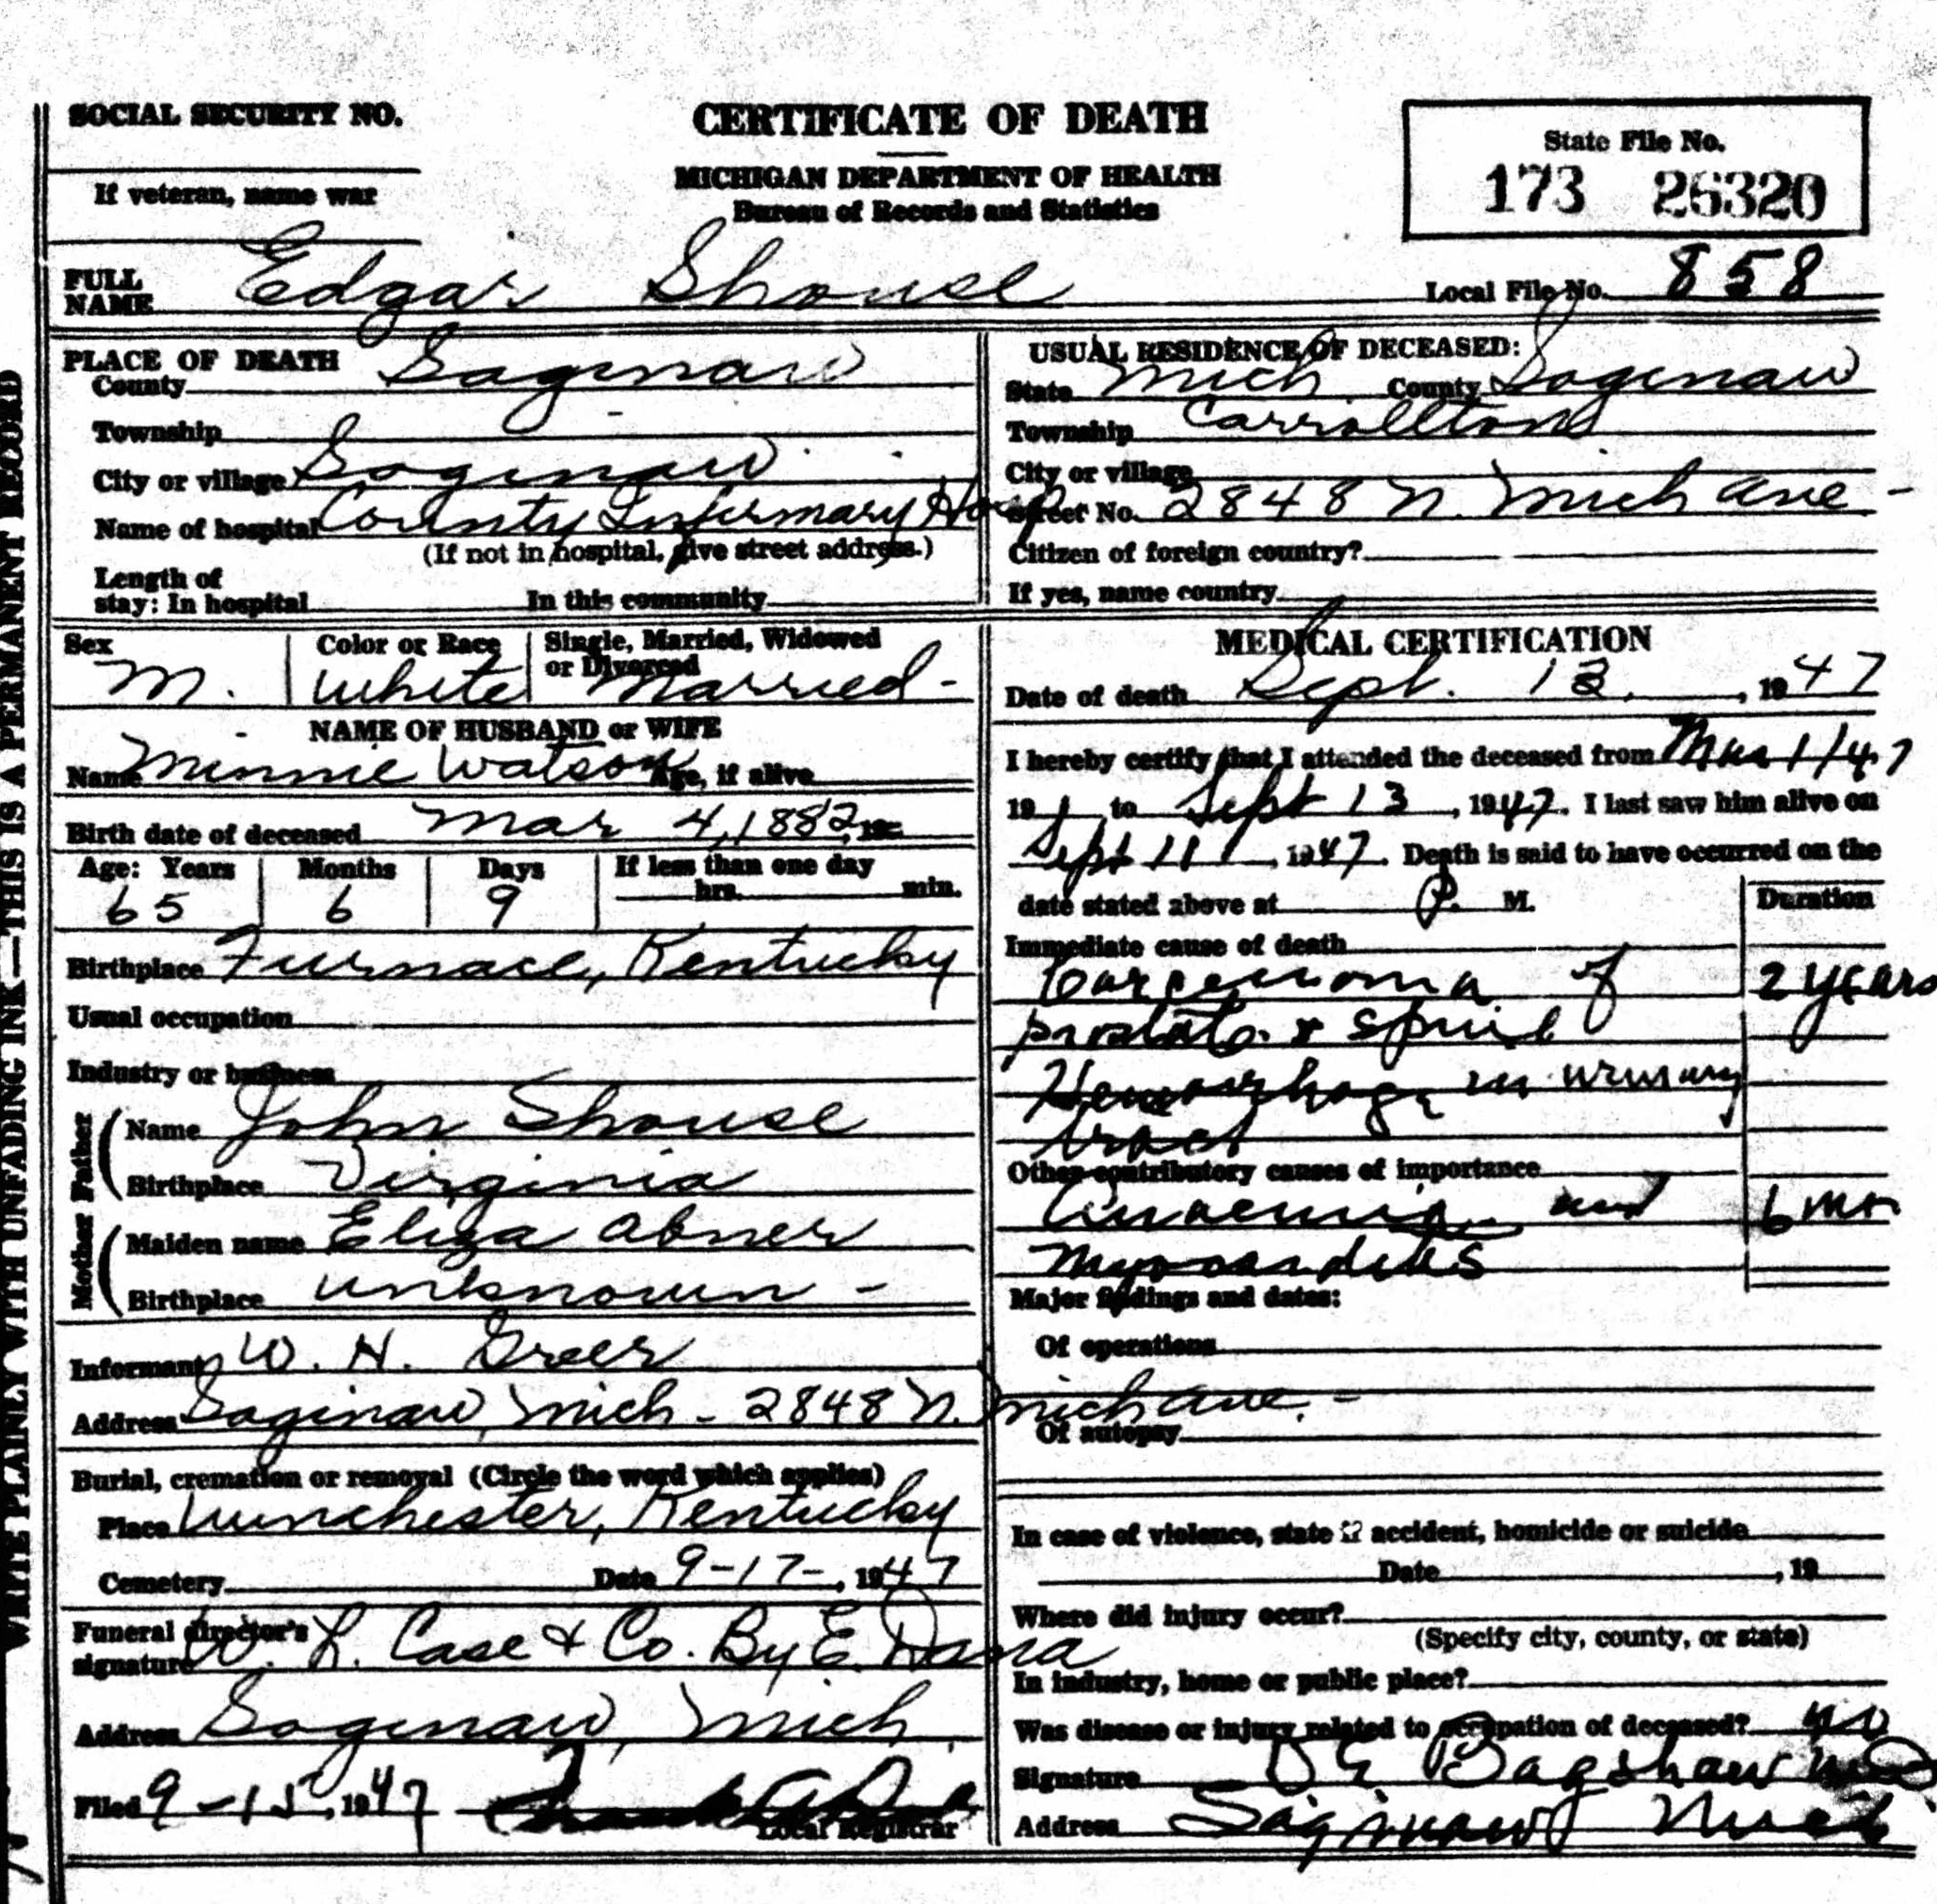 WRITE PLAINLY WITH UNFADING INK—THIS IS A PERMANENT RECORD
SOCIAL SECURITY NO.
If veteran, name war
CERTIFICATE OF DEATH
MICHIGAN DEPARTMENT OF HEALTH
Bureau of Records and Statistics
State File No.
173 26320
FULL NAME Edgar Shouse
Local File No. 858
PLACE OF DEATH
County Saginaw
Township -
City or village Saginaw
Name of hospital County Infirmary Hosp
(If not in hospital, give street address.)
Length of
stay: In hospital In this community
USUAL RESIDENCE OF DECEASED:
State Mich County Saginaw
Township Carrollton
City or village
Street No. 2848 N. Mich Ave -
Citizen of foreign country?
If yes, name country
Sex M.
Color or Race White
Single, Married, Widowed or Divorced Married -
NAME OF HUSBAND or WIFE
Name Minnie Watson Age, if alive
Birth date of deceased Mar 4, 1882, 19
Age: Years 65 Months 6 Days 9 If less than one day hrs. min.
Birthplace Furnace, Kentucky
Usual occupation
Industry or business
Father
Name John Shouse
Birthplace Virginia
Mother
Maiden name Eliza Abner
Birthplace unknown -
Informant W. H. Greer
Address Saginaw, Mich - 2848 N. Mich Ave. -
Burial, cremation or removal (Circle the word which applies)
Place Winchester, Kentucky
Cemetery Date 9-17-, 1947
Funeral director's signature W. L. Case & Co. By E. Dana
Address Saginaw, Mich.
Filed 9-15, 1947
Local Registrar
MEDICAL CERTIFICATION
Date of death Sept. 13, 1947
I hereby certify that I attended the deceased from 1/47
19 to Sept 13, 1947. I last saw him alive on
Sept 11, 1947. Death is said to have occurred on the
date stated above at P. M.
Duration
Immediate cause of death
Carcenoma of 2 years
prostate & spine
Hemorrhage in urinary
tract
Other contributory causes of importance
Anaemia and 6 mo.
Myocarditis
Major findings and dates:
Of operations
Of autopsy
In case of violence, state if accident, homicide or suicide
Date , 19
Where did injury occur?
(Specify city, county, or state)
In industry, home or public place?
Was disease or injury related to occupation of deceased? no
Signature Bagshaw MD
Address Saginaw Mich